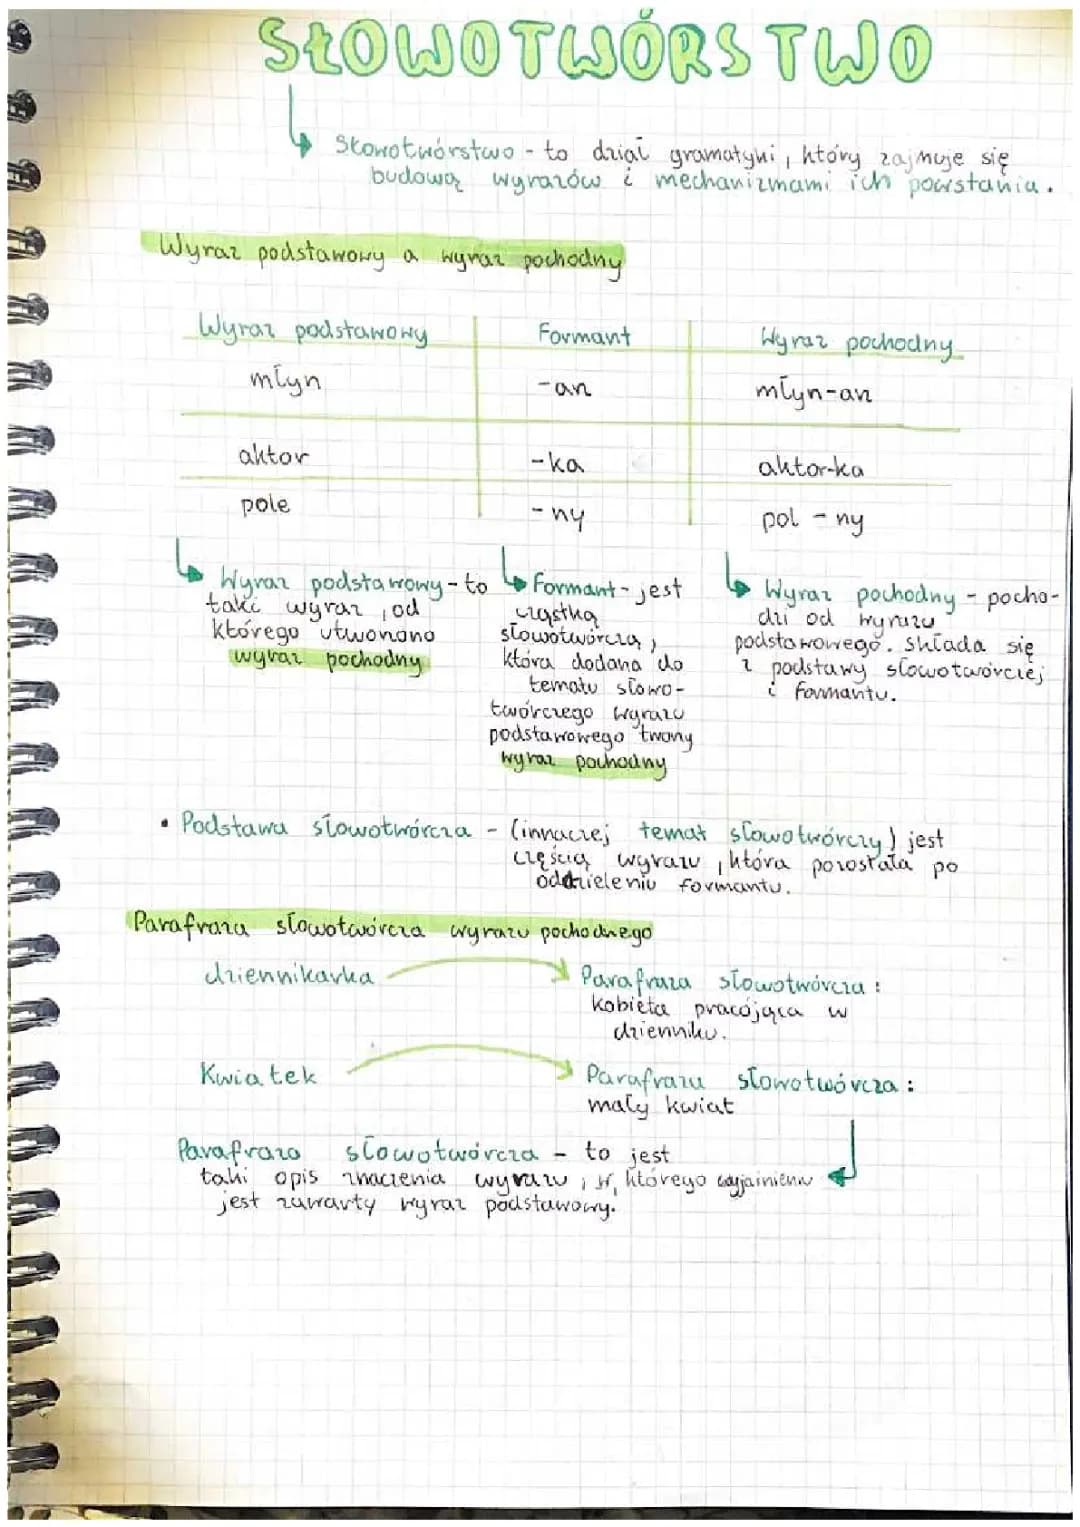 SŁOWOTWÓRSTWO
Słowotwórstwo - to dział gramatyki, który zajmuje się
budową wyrazów i mechanizmami ich powstania.
Wyraz podstawowy a wyraz pochodny
Wyraz podstawowy Formant Wyraz pochodny
młyn -arz młyn-arz
aktor -ka aktor-ka
pole -ny pol - ny
Wyraz podstawowy - to
taki wyraz, od
którego utworzono
wyraz pochodny
Formant - jest
cząstką
słowotwórczą,
która dodana do
tematu słowo-
twórczego wyrazu
podstawowego tworzy
wyraz pochodny
Wyraz pochodny - pocho-
dzi od wyrazu
podstawowego. Składa się
z podstawy słowotwórczej
i formantu.
• Podstawa słowotwórcza - (innaczej temat słowotwórczy) jest
częścią wyrazu, która pozostała po
oddzieleniu formantu.
Parafraza słowotwórcza wyrazu pochodnego
dziennikarka Parafraza słowotwórcza:
kobieta pracójąca w
dzienniku.
Kwiatek Parafraza słowotwórcza:
mały kwiat
Parafraza słowotwórcza - to jest
taki opis znaczenia wyrazu, w którego wyjaśnieniu
jest zawarty wyraz podstawowy.